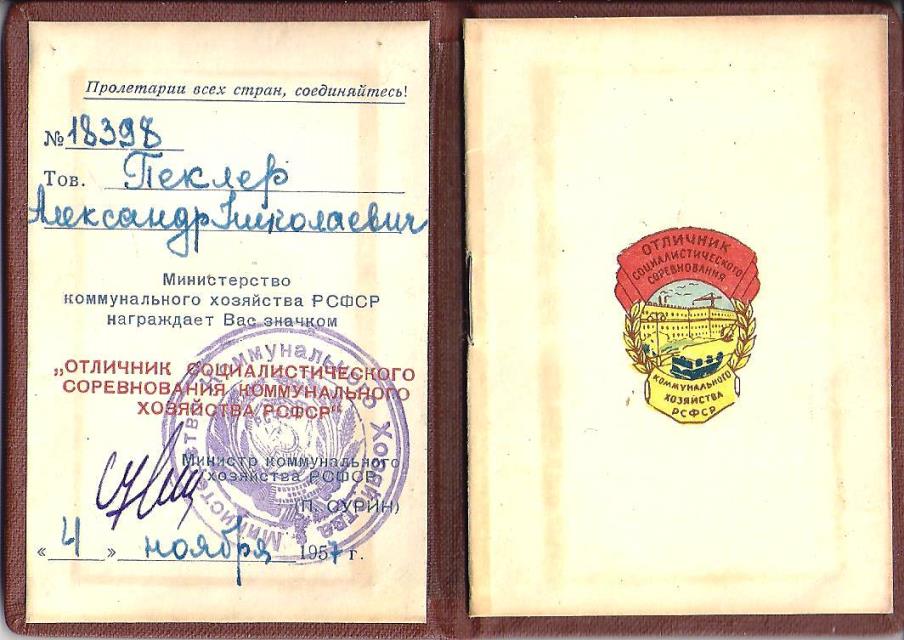 Пролетарии всех стран, соединяйтесь!
№ 18398
Тов. Пеклер
Александр Николаевич
Министерство
коммунального хозяйства РСФСР
награждает Вас значком
„ОТЛИЧНИК СОЦИАЛИСТИЧЕСКОГО
СОРЕВНОВАНИЯ КОММУНАЛЬНОГО
ХОЗЯЙСТВА РСФСР“
Министр коммунального
хозяйства РСФСР
(П. СУРИН)
« 4 » ноября 1957 г.
Министерство Коммунального Хозяйства
ОТЛИЧНИК
СОЦИАЛИСТИЧЕСКОГО
СОРЕВНОВАНИЯ
КОММУНАЛЬНОГО
ХОЗЯЙСТВА
РСФСР